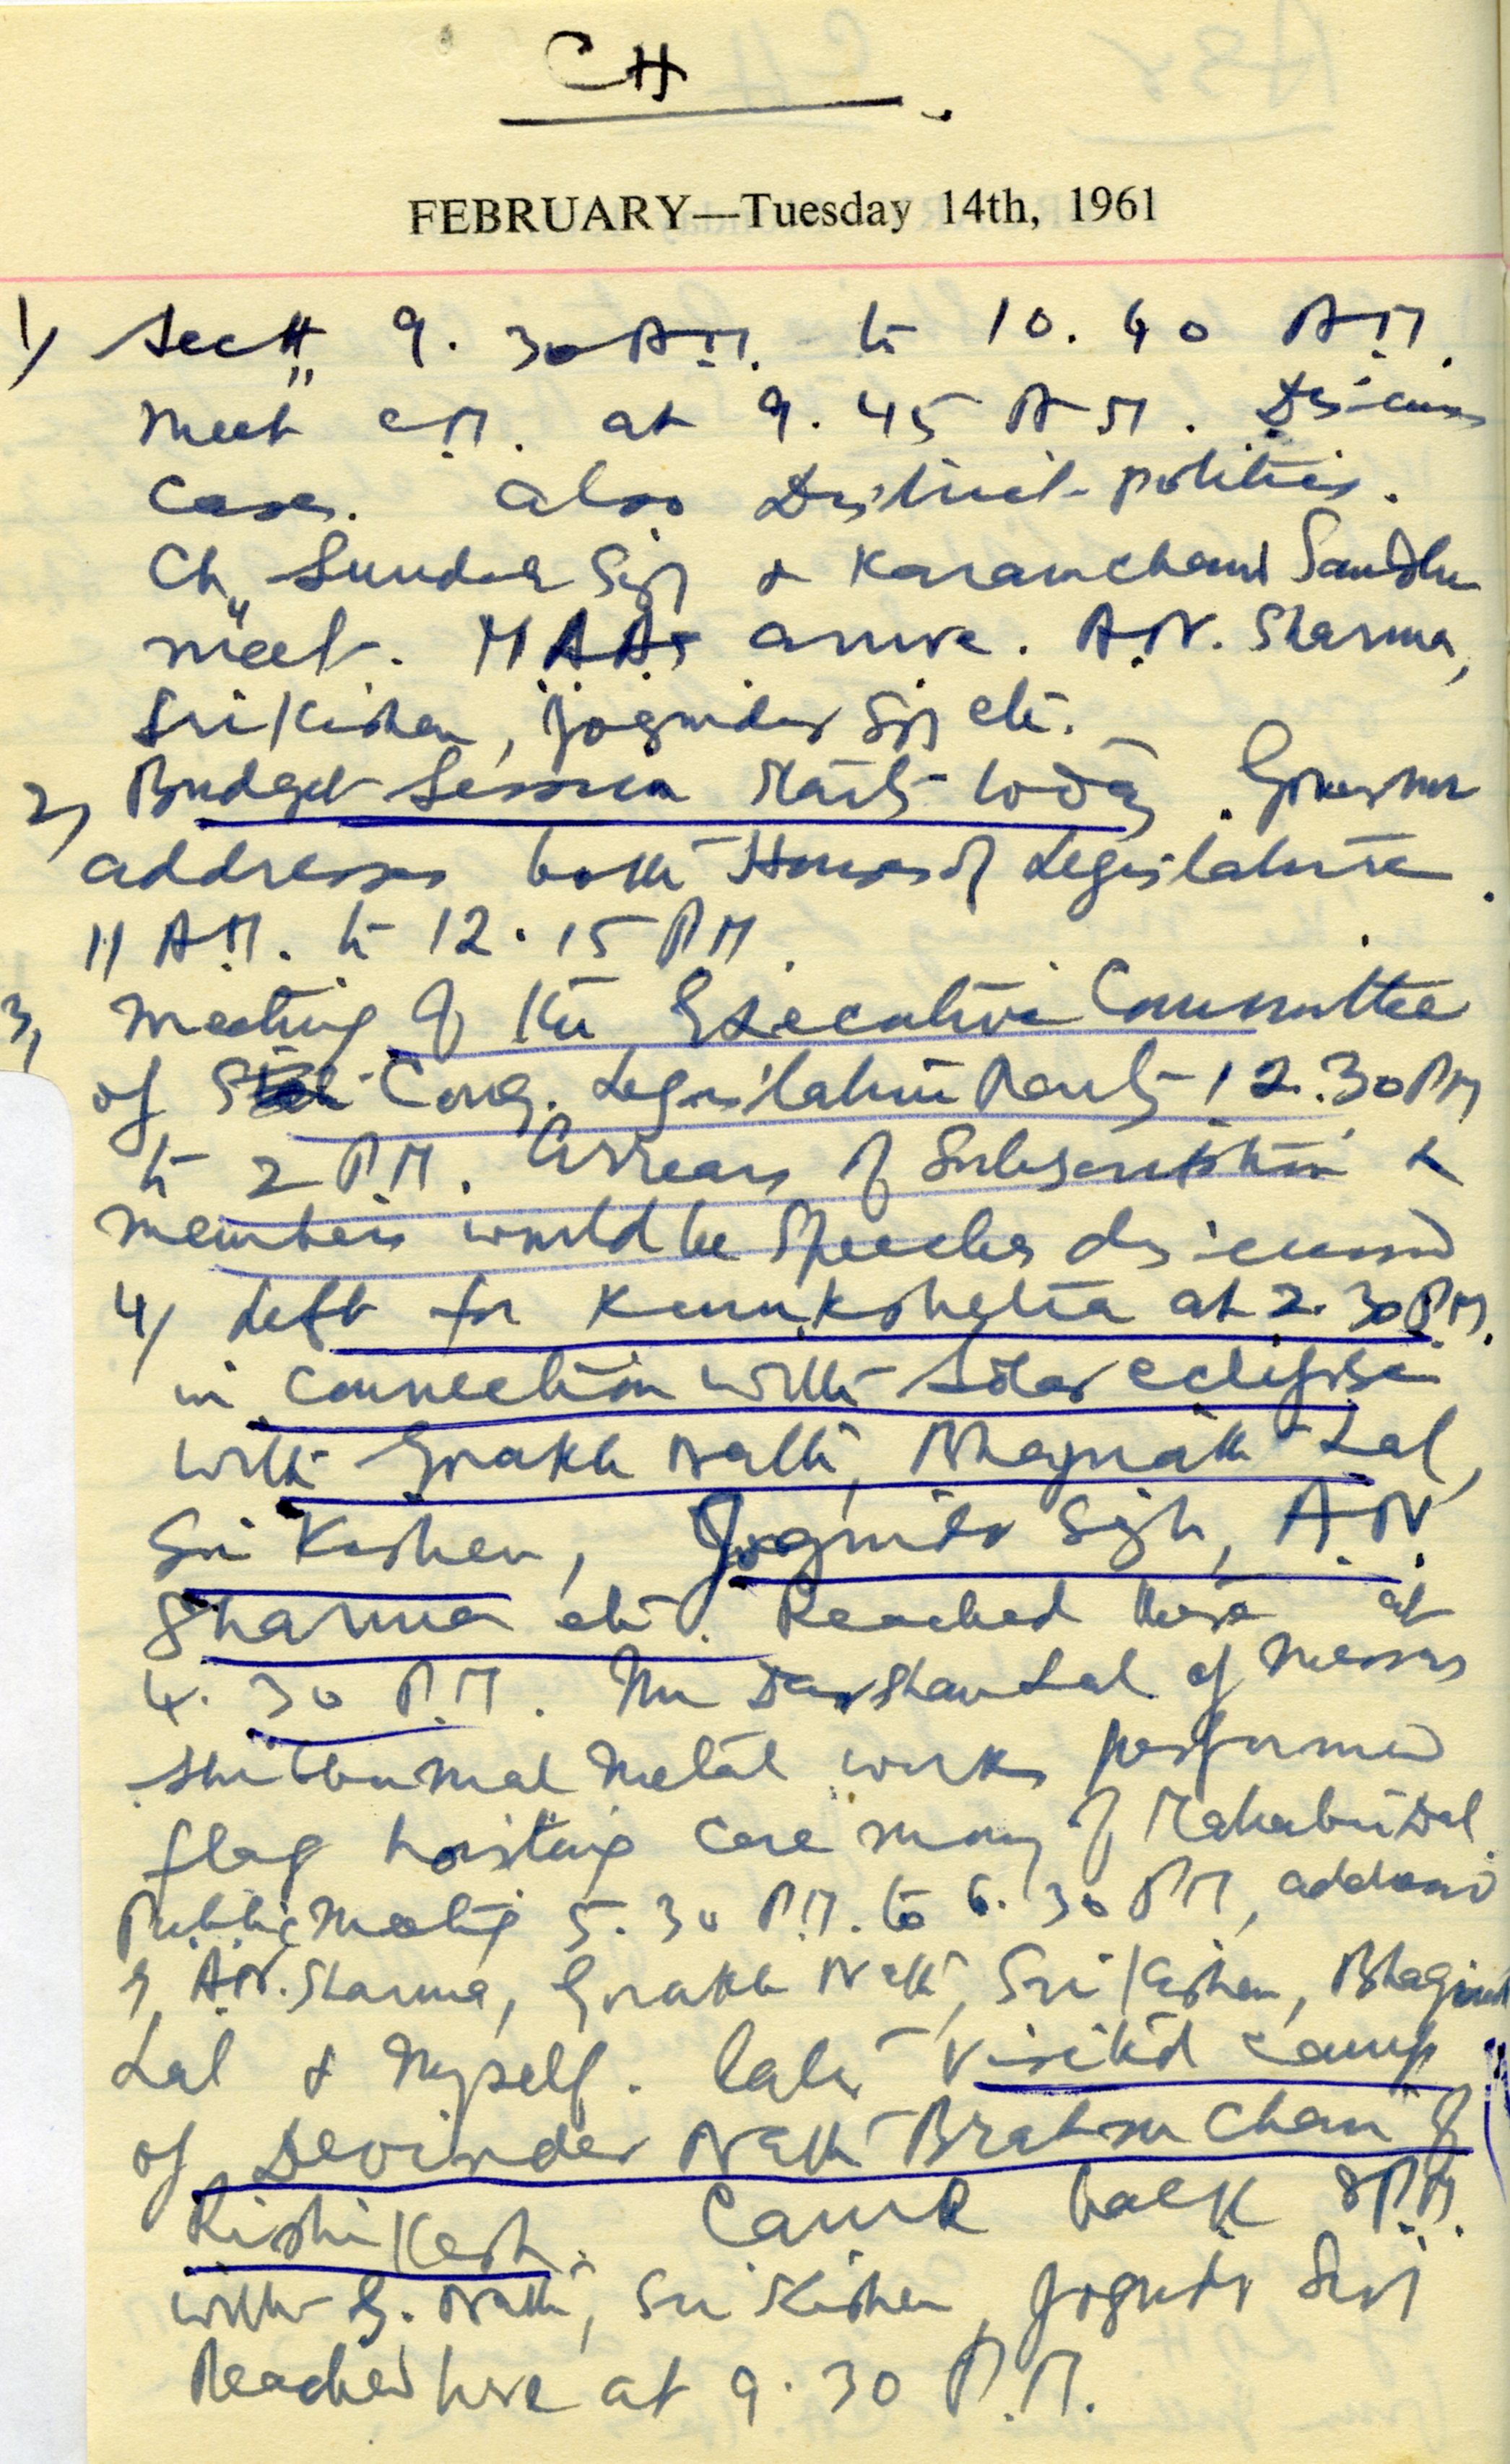 CH
FEBRUARY—Tuesday 14th, 1961
1) Sectt 9.30 A.M. to 10.40 A.M.
Meet C.M. at 9.45 A.M. Discuss
Cases. Also District politics.
Ch. Sunder Singh & Karamchand Sandhu
meet. arrive. A.N. Sharma,
Sri Kishen, Joginder Singh etc.
2) Budget Session starts today. Governor
addresses both Houses of Legislature.
11 A.M. to 12.15 P.M.
3) Meeting of the Executive Committee
of Cong. Legislature Party 12.30 P.M
to 2 P.M. Arrears of Subscription &
members would be speeches discussed
4) Left for Kurukshetra at 2.30 P.M.
in connection with Solar eclipse
with Gorakh Nath, Bhagirath Lal,
Sri Kishen, Joginder Singh, A.N.
Sharma etc. Reached there at
4.30 P.M. Darshan Lal of Messrs
Metal works performed
flag hoisting ceremony of Mahabir Dal.
Public Meeting 5.30 P.M. to 6.30 P.M, addressed
by A.N. Sharma, Gorakh Nath, Sri Kishen, Bhagirath
Lal & myself. Later visited camp
of Devinder Nath Brahmchari of
Rishikesh. Came back 8 P.M.
with G. Nath, Sri Kishen, Joginder Singh
Reached here at 9.30 P.M.